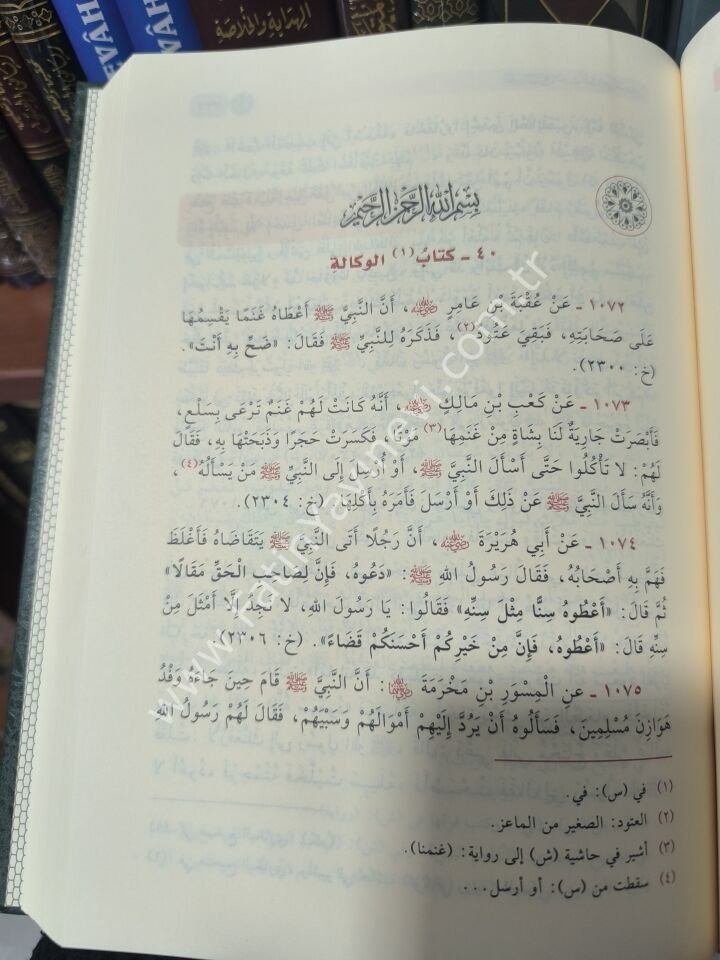 الهداية والخلاصة
EVÂH
EVÂH
بسم الله الرحمن الرحيم
٤٠ ـ كتابُ (١) الوكالةِ
١٠٧٢ ـ عَنْ عُقْبَةَ بْنِ عَامِرٍ رضي الله عنه، أَنَّ النَّبِيَّ ﷺ أَعْطَاهُ غَنَمًا يَقْسِمُهَا
عَلَى صَحَابَتِهِ، فَبَقِيَ عَتُودٌ(٢)، فَذَكَرَهُ لِلنَّبِيِّ ﷺ فَقَالَ: «ضَحِّ بِهِ أَنْتَ».
(خ: ٢٣٠٠).
١٠٧٣ ـ عَنْ كَعْبِ بْنِ مَالِكٍ رضي الله عنه، أَنَّهُ كَانَتْ لَهُمْ غَنَمٌ تَرْعَى بِسَلْعٍ،
فَأَبْصَرَتْ جَارِيَةٌ لَنَا بِشَاةٍ مِنْ غَنَمِهَا(٣) مَوْتًا، فَكَسَرَتْ حَجَرًا وَذَبَحَتْهَا بِهِ، فَقَالَ
لَهُمْ: لَا تَأْكُلُوا حَتَّى أَسْأَلَ النَّبِيَّ ﷺ، أَوْ أُرْسِلَ إِلَى النَّبِيِّ ﷺ مَنْ يَسْأَلُهُ(٤)،
وَأَنَّهُ سَأَلَ النَّبِيَّ ﷺ عَنْ ذَلِكَ أَوْ أَرْسَلَ فَأَمَرَهُ بِأَكْلِهَا. (خ: ٢٣٠٤).
١٠٧٤ ـ عَنْ أَبِي هُرَيْرَةَ رضي الله عنه، أَنَّ رَجُلًا أَتَى النَّبِيَّ ﷺ يَتَقَاضَاهُ فَأَغْلَظَ
فَهَمَّ بِهِ أَصْحَابُهُ، فَقَالَ رَسُولُ اللهِ ﷺ: «دَعُوهُ، فَإِنَّ لِصَاحِبِ الْحَقِّ مَقَالًا»
ثُمَّ قَالَ: «أَعْطُوهُ سِنًّا مِثْلَ سِنِّهِ» فَقَالُوا: يَا رَسُولَ اللهِ، لَا نَجِدُ إِلَّا أَمْثَلَ مِنْ
سِنِّهِ قَالَ: «أَعْطُوهُ، فَإِنَّ مِنْ خَيْرِكُمْ أَحْسَنَكُمْ قَضَاءً». (خ: ٢٣٠٦).
١٠٧٥ ـ عَنِ الْمِسْوَرِ بْنِ مَخْرَمَةَ رضي الله عنهما: أَنَّ النَّبِيَّ ﷺ قَامَ حِينَ جَاءَهُ وَفْدُ
هَوَازِنَ مُسْلِمِينَ، فَسَأَلُوهُ أَنْ يَرُدَّ إِلَيْهِمْ أَمْوَالَهُمْ وَسَبْيَهُمْ، فَقَالَ لَهُمْ رَسُولُ اللهِ
(١) في (س): في.
(٢) العتود: الصغير من الماعز.
(٣) أشير في حاشية (ش) إلى رواية: (غنمنا).
(٤) سقطت من (س): أو أرسَل...